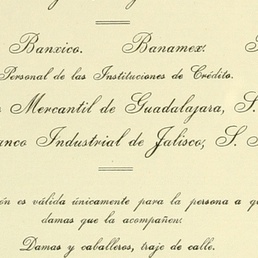 Banxico. Banamex.
Personal de las Instituciones de Crédito.
Mercantil de Guadalajara, S.
Industrial de Jalisco, S.
es válida únicamente para la persona a
damas que la acompañen.
Damas y caballeros, traje de calle.